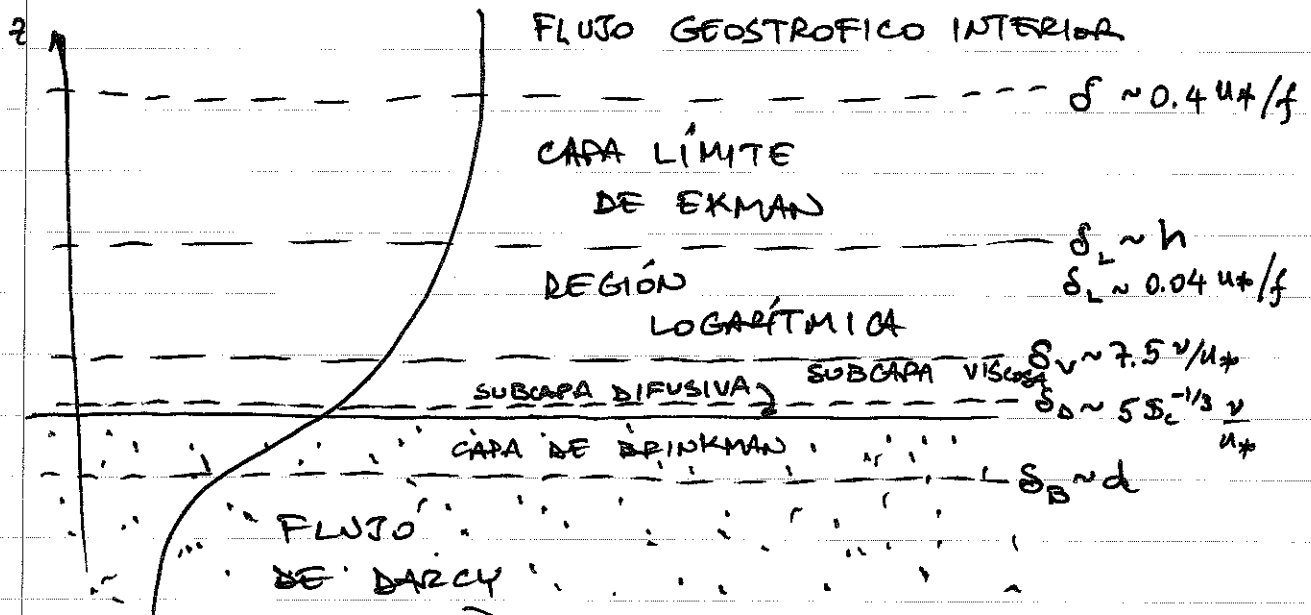 z
FLUJO GEOSTROFICO INTERIOR
δ ~ 0.4 u*/f
CAPA LÍMITE
DE EKMAN
δ_L ~ h
δ_L ~ 0.04 u*/f
REGIÓN
LOGARÍTMICA
δ_V ~ 7.5 ν/u*
SUBCAPA VISCOSA
SUBCAPA DIFUSIVA
δ_D ~ 5 Sc^-1/3 ν/u*
CAPA DE BRINKMAN
δ_B ~ d
FLUJO
DE DARCY